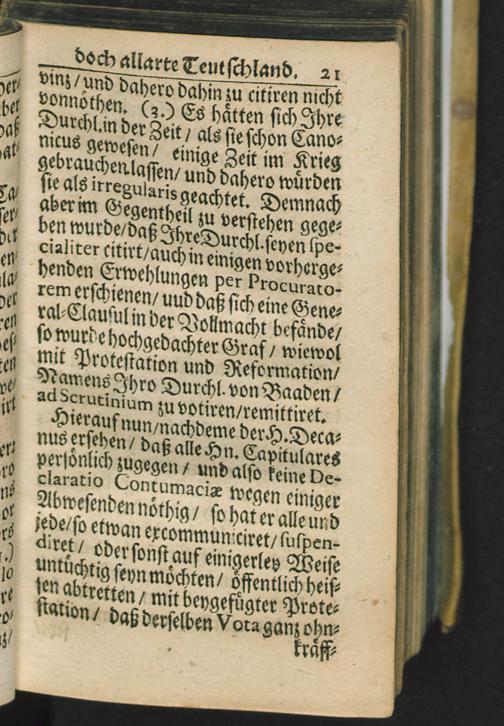 doch allarte Teutschland. 21
vinz / und dahero dahin zu citiren nicht
vonnöthen. (3.) Es hätten sich Ihre
Durchl. in der Zeit / als sie schon Cano-
nicus gewesen / einige Zeit im Krieg
gebrauchen lassen / und dahero würden
sie als irregularis geachtet. Demnach
aber im Gegentheil zu verstehen gege-
ben wurde / daß Ihre Durchl. seyen spe-
cialiter citirt / auch in einigen vorherge-
henden Erwehlungen per Procurato-
rem erschienen / uud daß sich eine Gene-
ral-Clausul in der Vollmacht befände /
so wurde hochgedachter Graf / wiewol
mit Protestation und Reformation /
Namens Ihro Durchl. von Baaden /
ad Scrutinium zu votiren / remittiret.
Hierauf nun / nachdeme der H. Deca-
nus ersehen / daß alle Hn. Capitulares
persönlich zugegen / und also keine De-
claratio Contumaciæ wegen einiger
Abwesenden nöthig / so hat er alle und
jede / so etwan excommuniciret / suspen-
diret / oder sonst auf einigerley Weise
untüchtig seyn möchten / öffentlich heis-
sen abtretten / mit beygefügter Prote-
station / daß derselben Vota ganz ohn-
kräff-